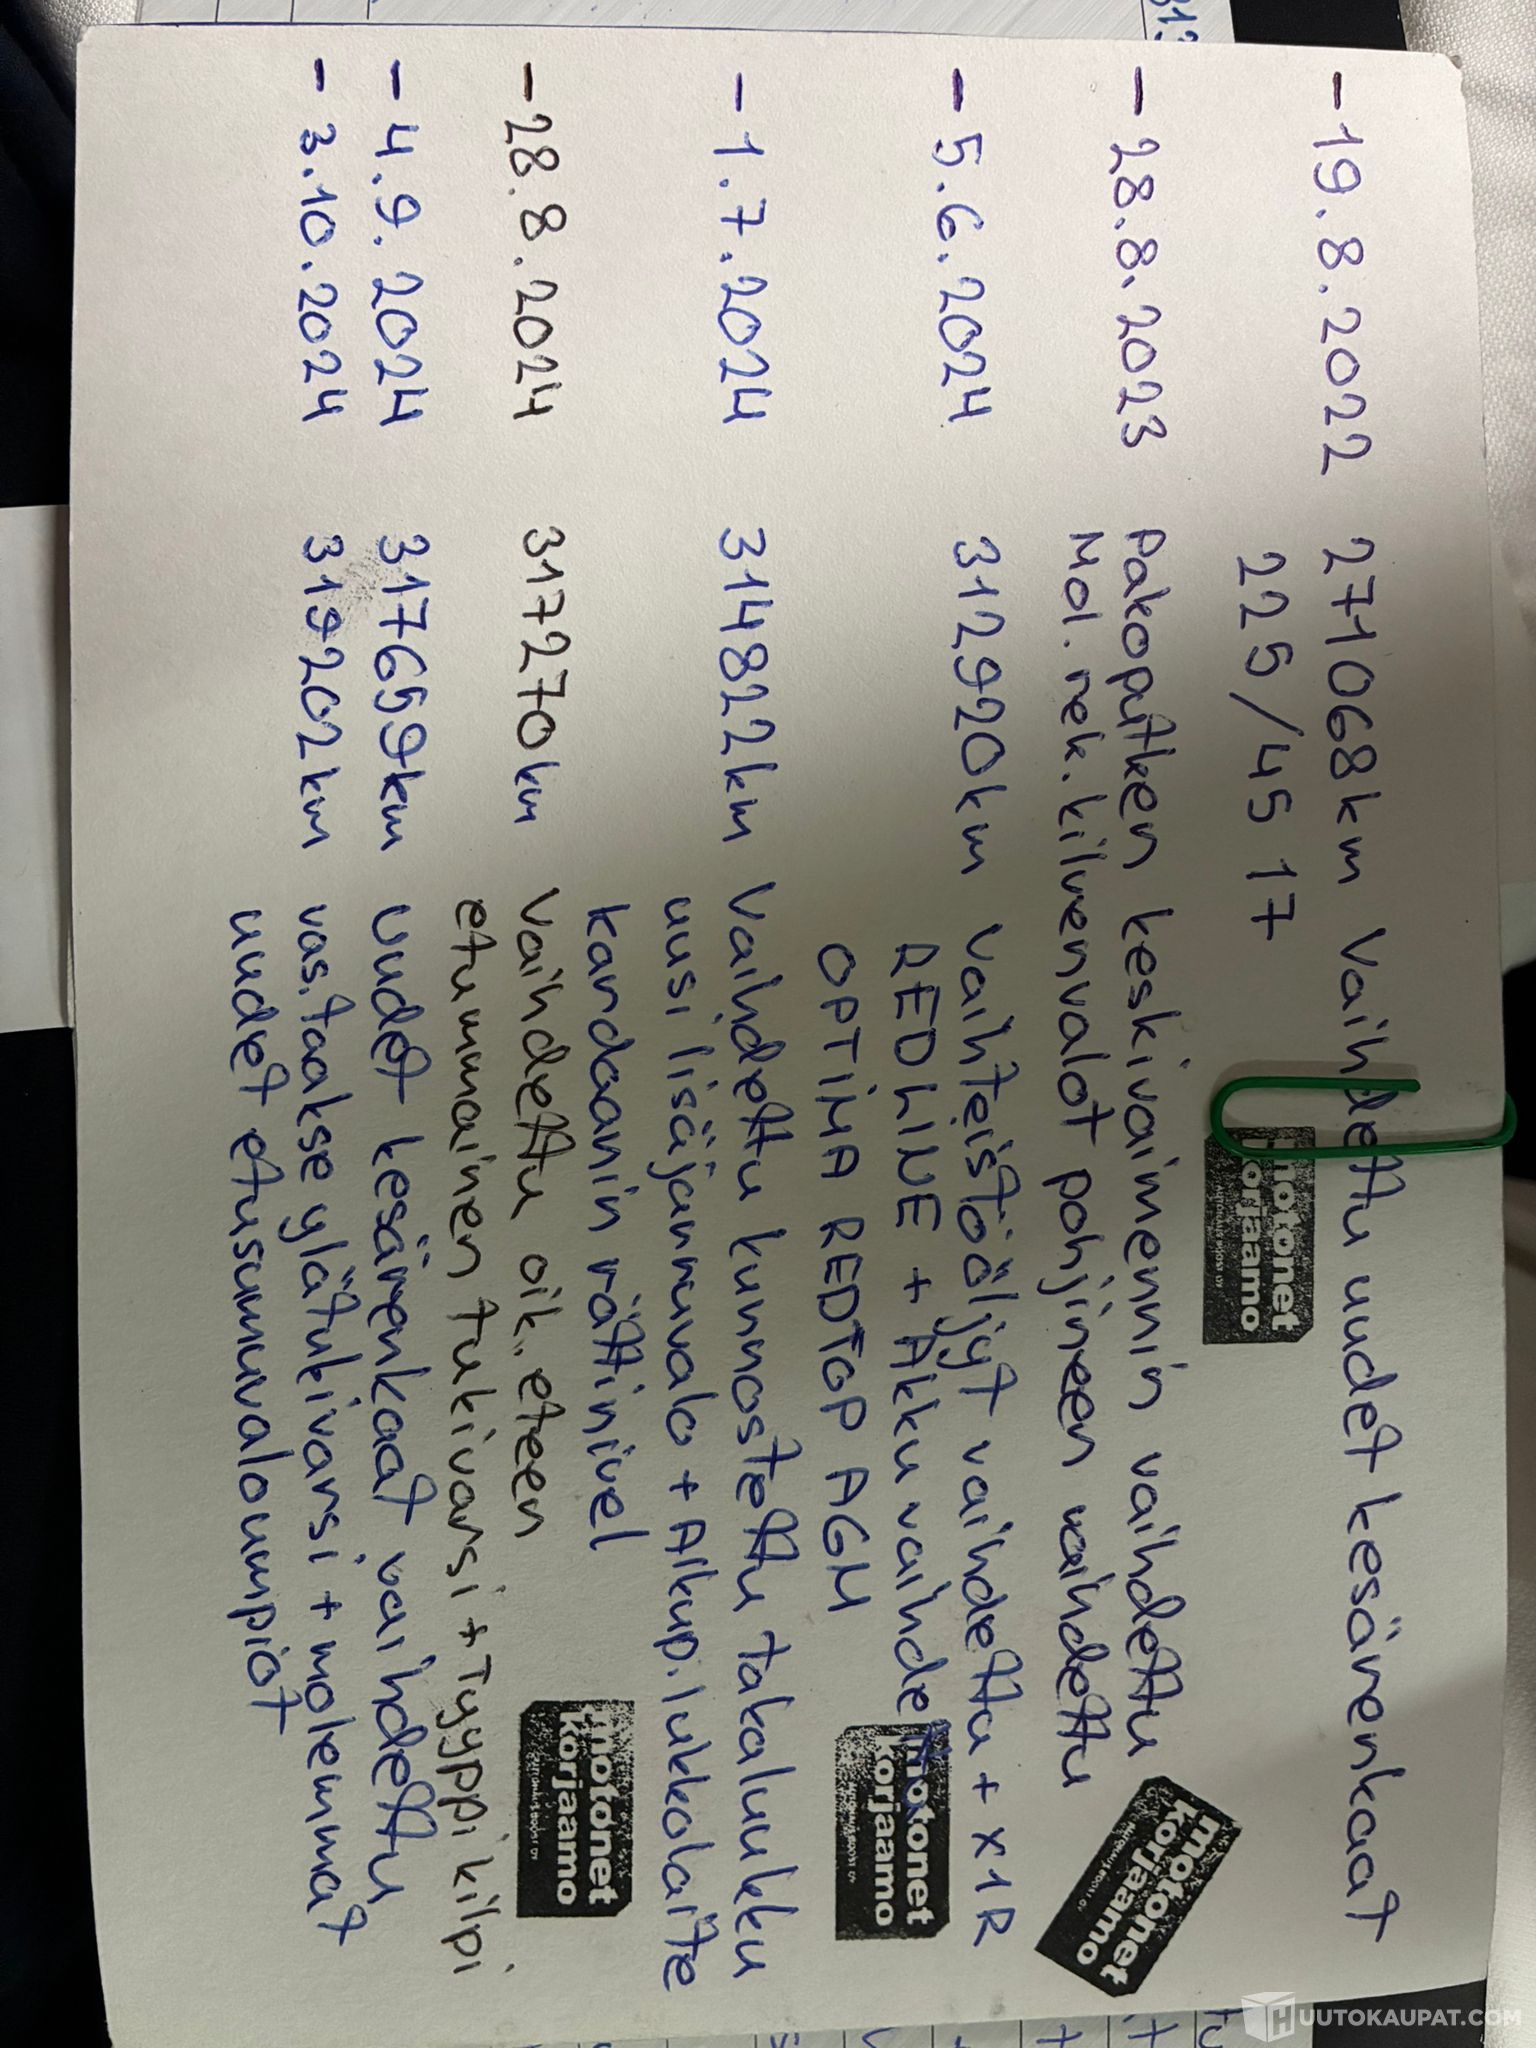 - 19.8.2022 271068km Vaihdettu uudet kesärenkaat
225/45 17
motonet
korjaamo
- 28.8.2023 pakoputken keskivaimennin vaihdettu
Mol. rek. kilvenvalot pohjineen vaihdettu
motonet
korjaamo
- 5.6.2024 312920km Vaihteistööljyt vaihdettu + X1R
REDLINE + Akku vaihdettu
OPTIMA REDTOP AGM
motonet
korjaamo
- 1.7.2024 314822km Vaihdettu kunnostettu takaluukku
uusi lisäjarruvalo + Alkup. lukkolaite
kardaanin rättinivel
motonet
korjaamo
- 28.8.2024 317270km Vaihdettu oik. eteen
etummainen tukivarsi + Tyyppikilpi
- 4.9.2024 317659km Uudet kesärenkaat vaihdettu
- 3.10.2024 319202km vas. taakse ylätukivarsi + molemmat
uudet etusumuvaloumpiot
HUUTOKAUPAT.COM